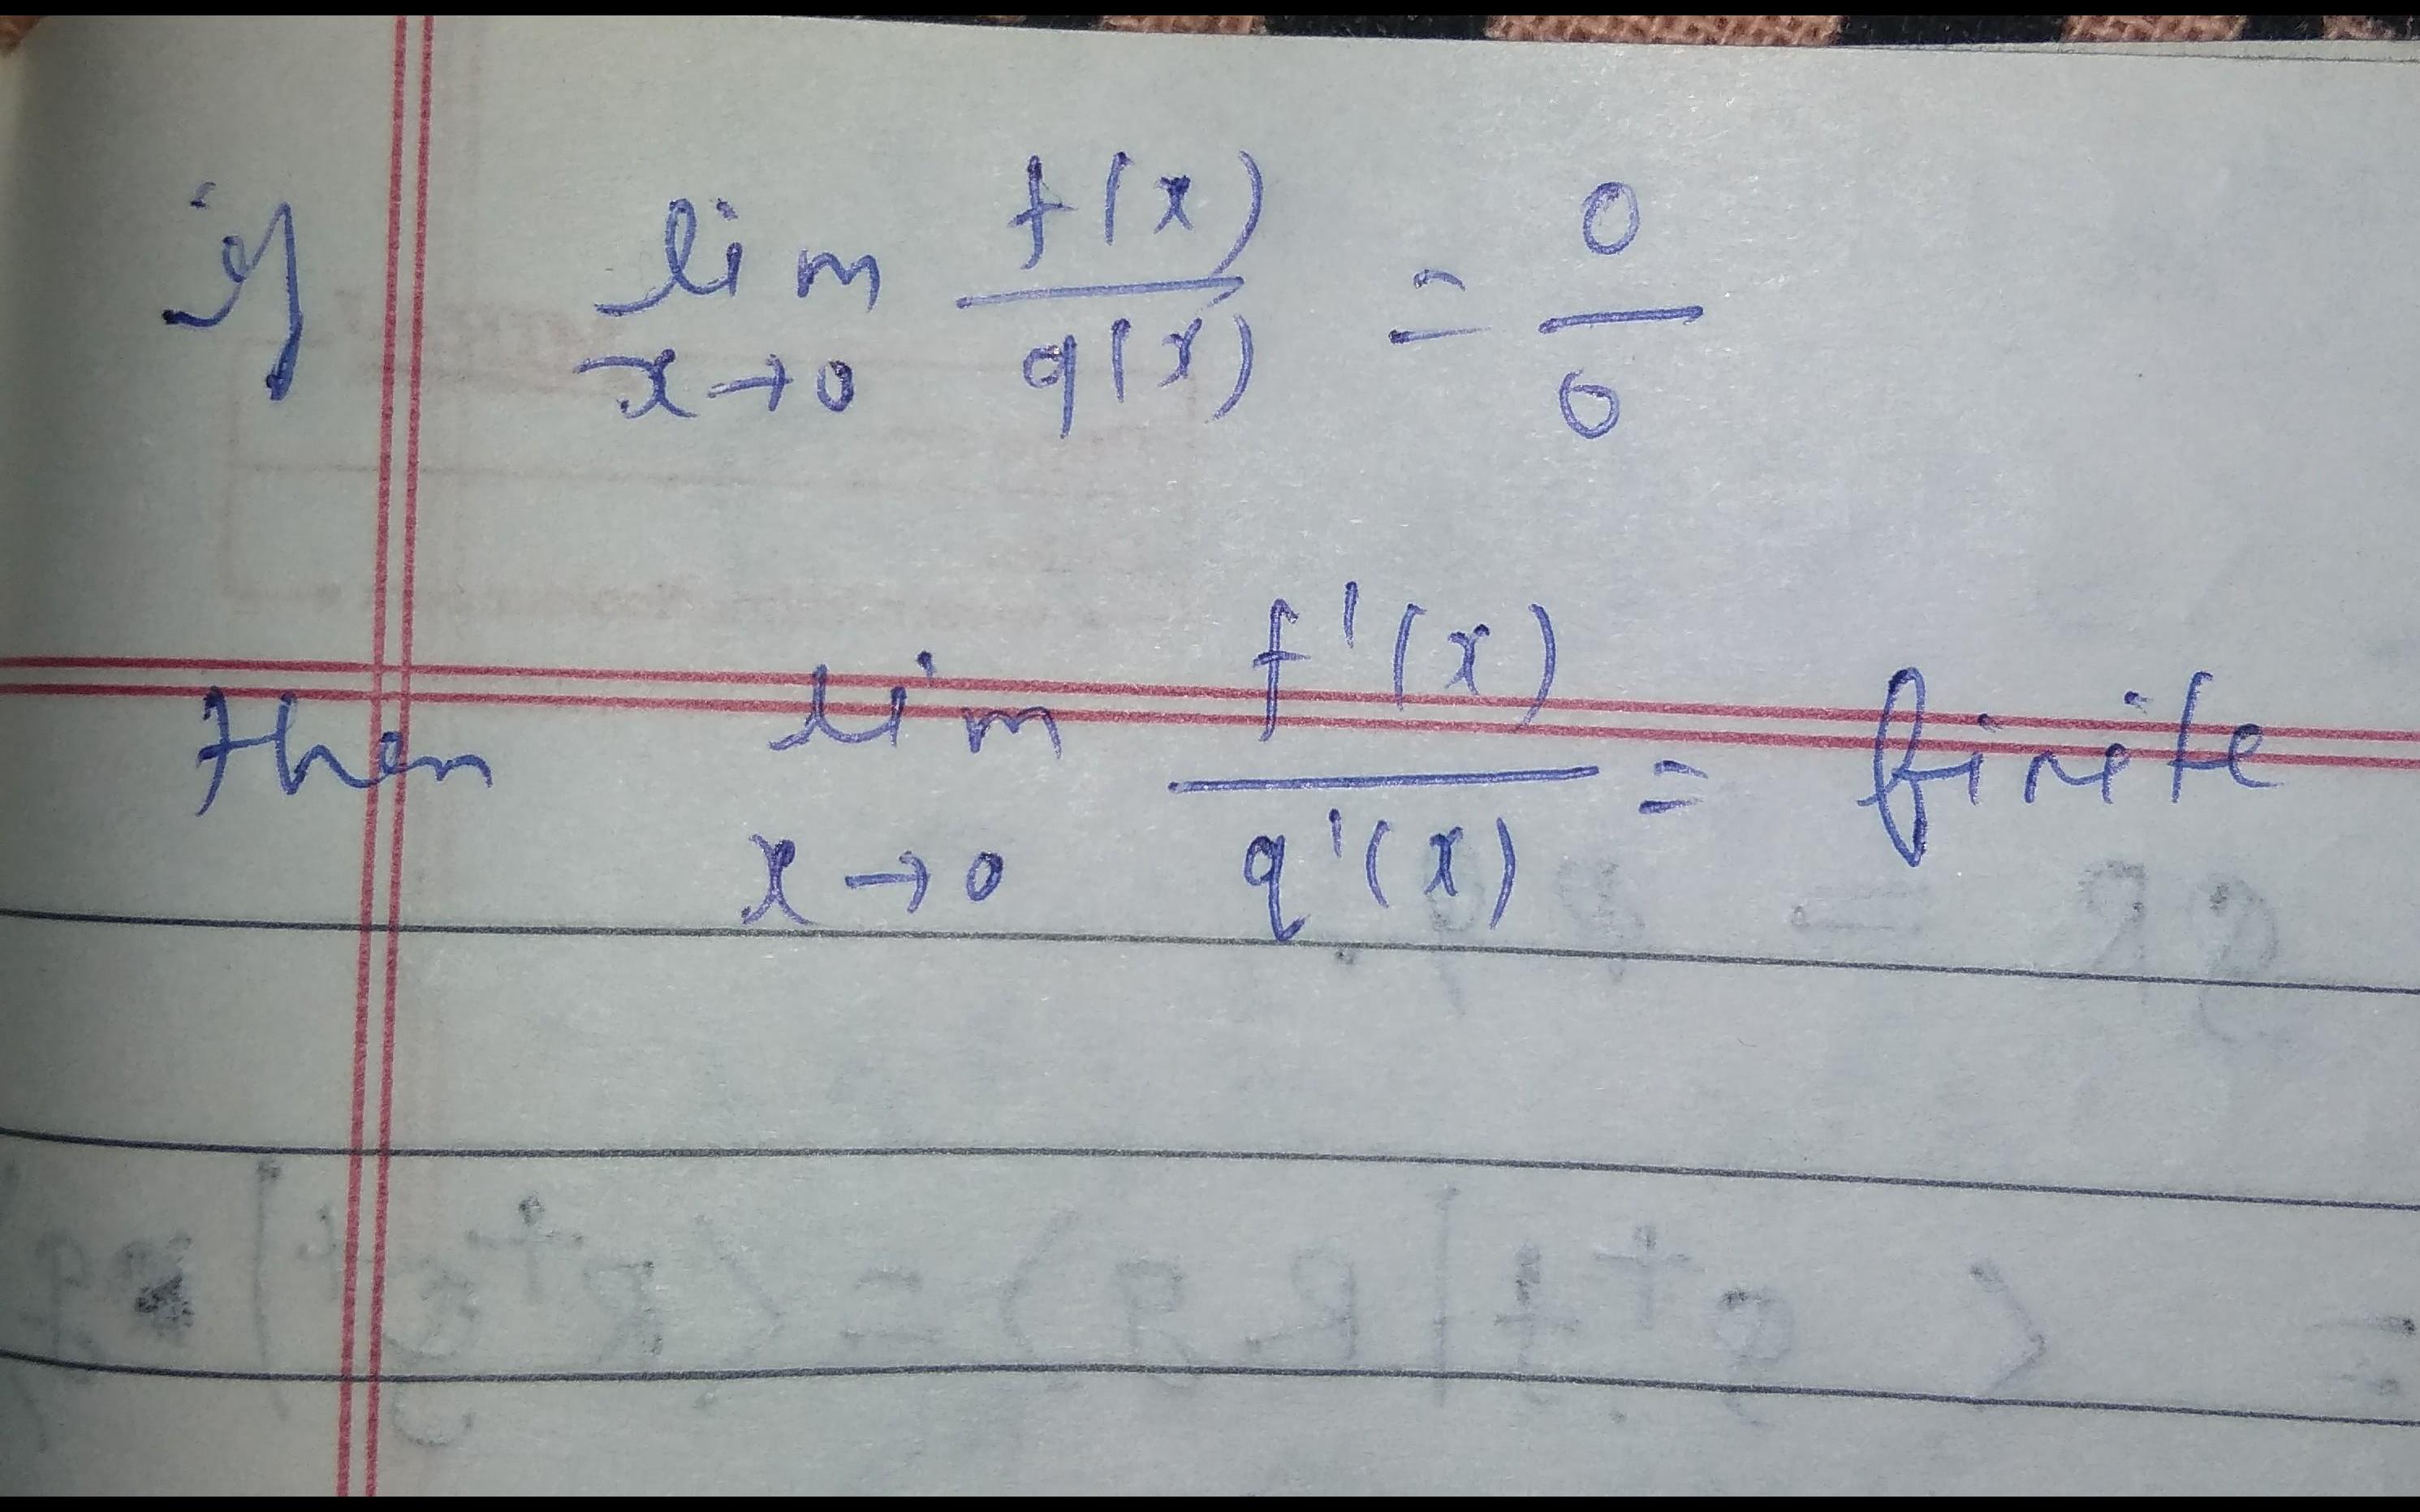 if lim x→0 f(x)/q(x) = 0/0
then lim x→0 f'(x)/q'(x) = finite